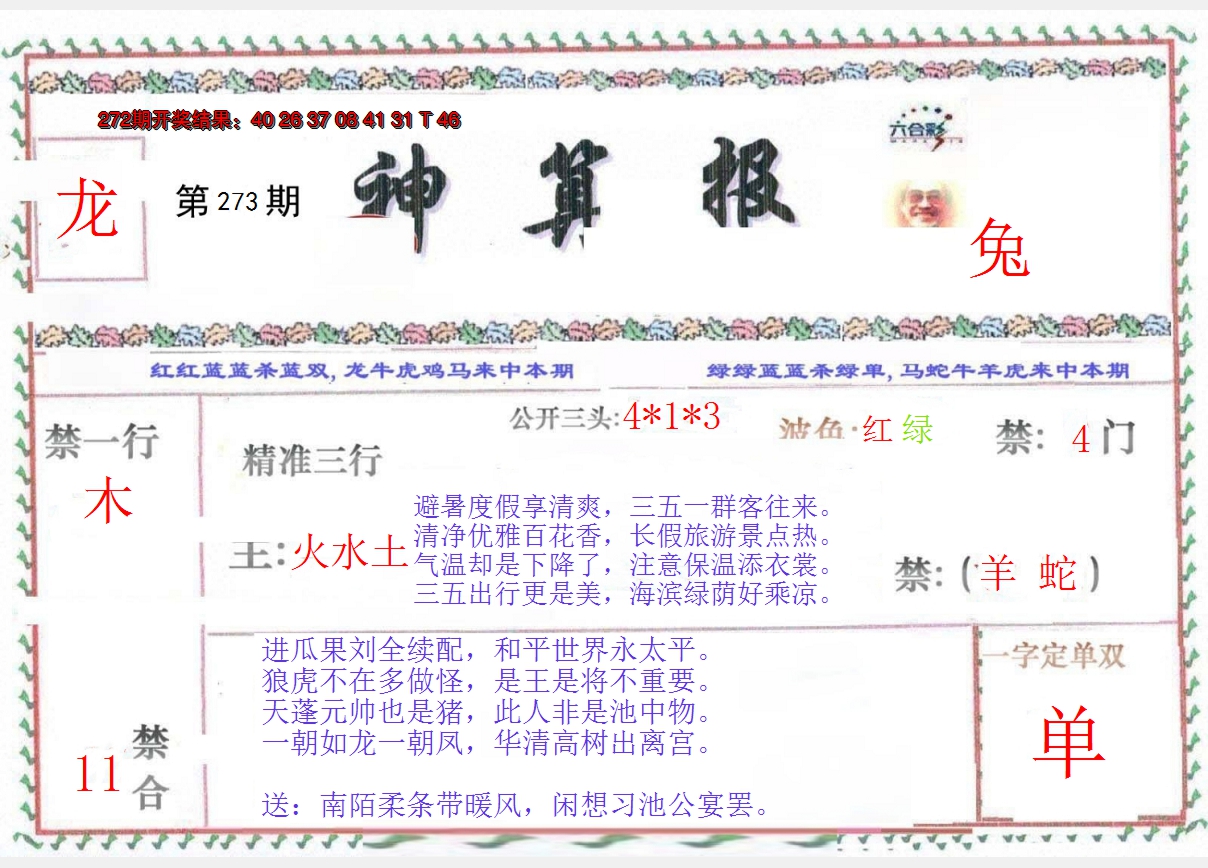 272期开奖结果：40 26 37 08 41 31 T 46
六合彩
龙
第273期
神算报
兔
红红蓝蓝杀蓝双,龙牛虎鸡马来中本期
绿绿蓝蓝杀绿单,马蛇牛羊虎来中本期
禁一行
木
精准三行
公开三头:4*1*3
波色:红 绿
禁: 4门
主:火水土
避暑度假享清爽，三五一群客往来。
清净优雅百花香，长假旅游景点热。
气温却是下降了，注意保温添衣裳。
三五出行更是美，海滨绿荫好乘凉。
禁:(羊 蛇)
进瓜果刘全续配，和平世界永太平。
狼虎不在多做怪，是王是将不重要。
天蓬元帅也是猪，此人非是池中物。
一朝如龙一朝凤，华清高树出离宫。
送：南陌柔条带暖风，闲想习池公宴罢。
11
禁合
一字定单双
单